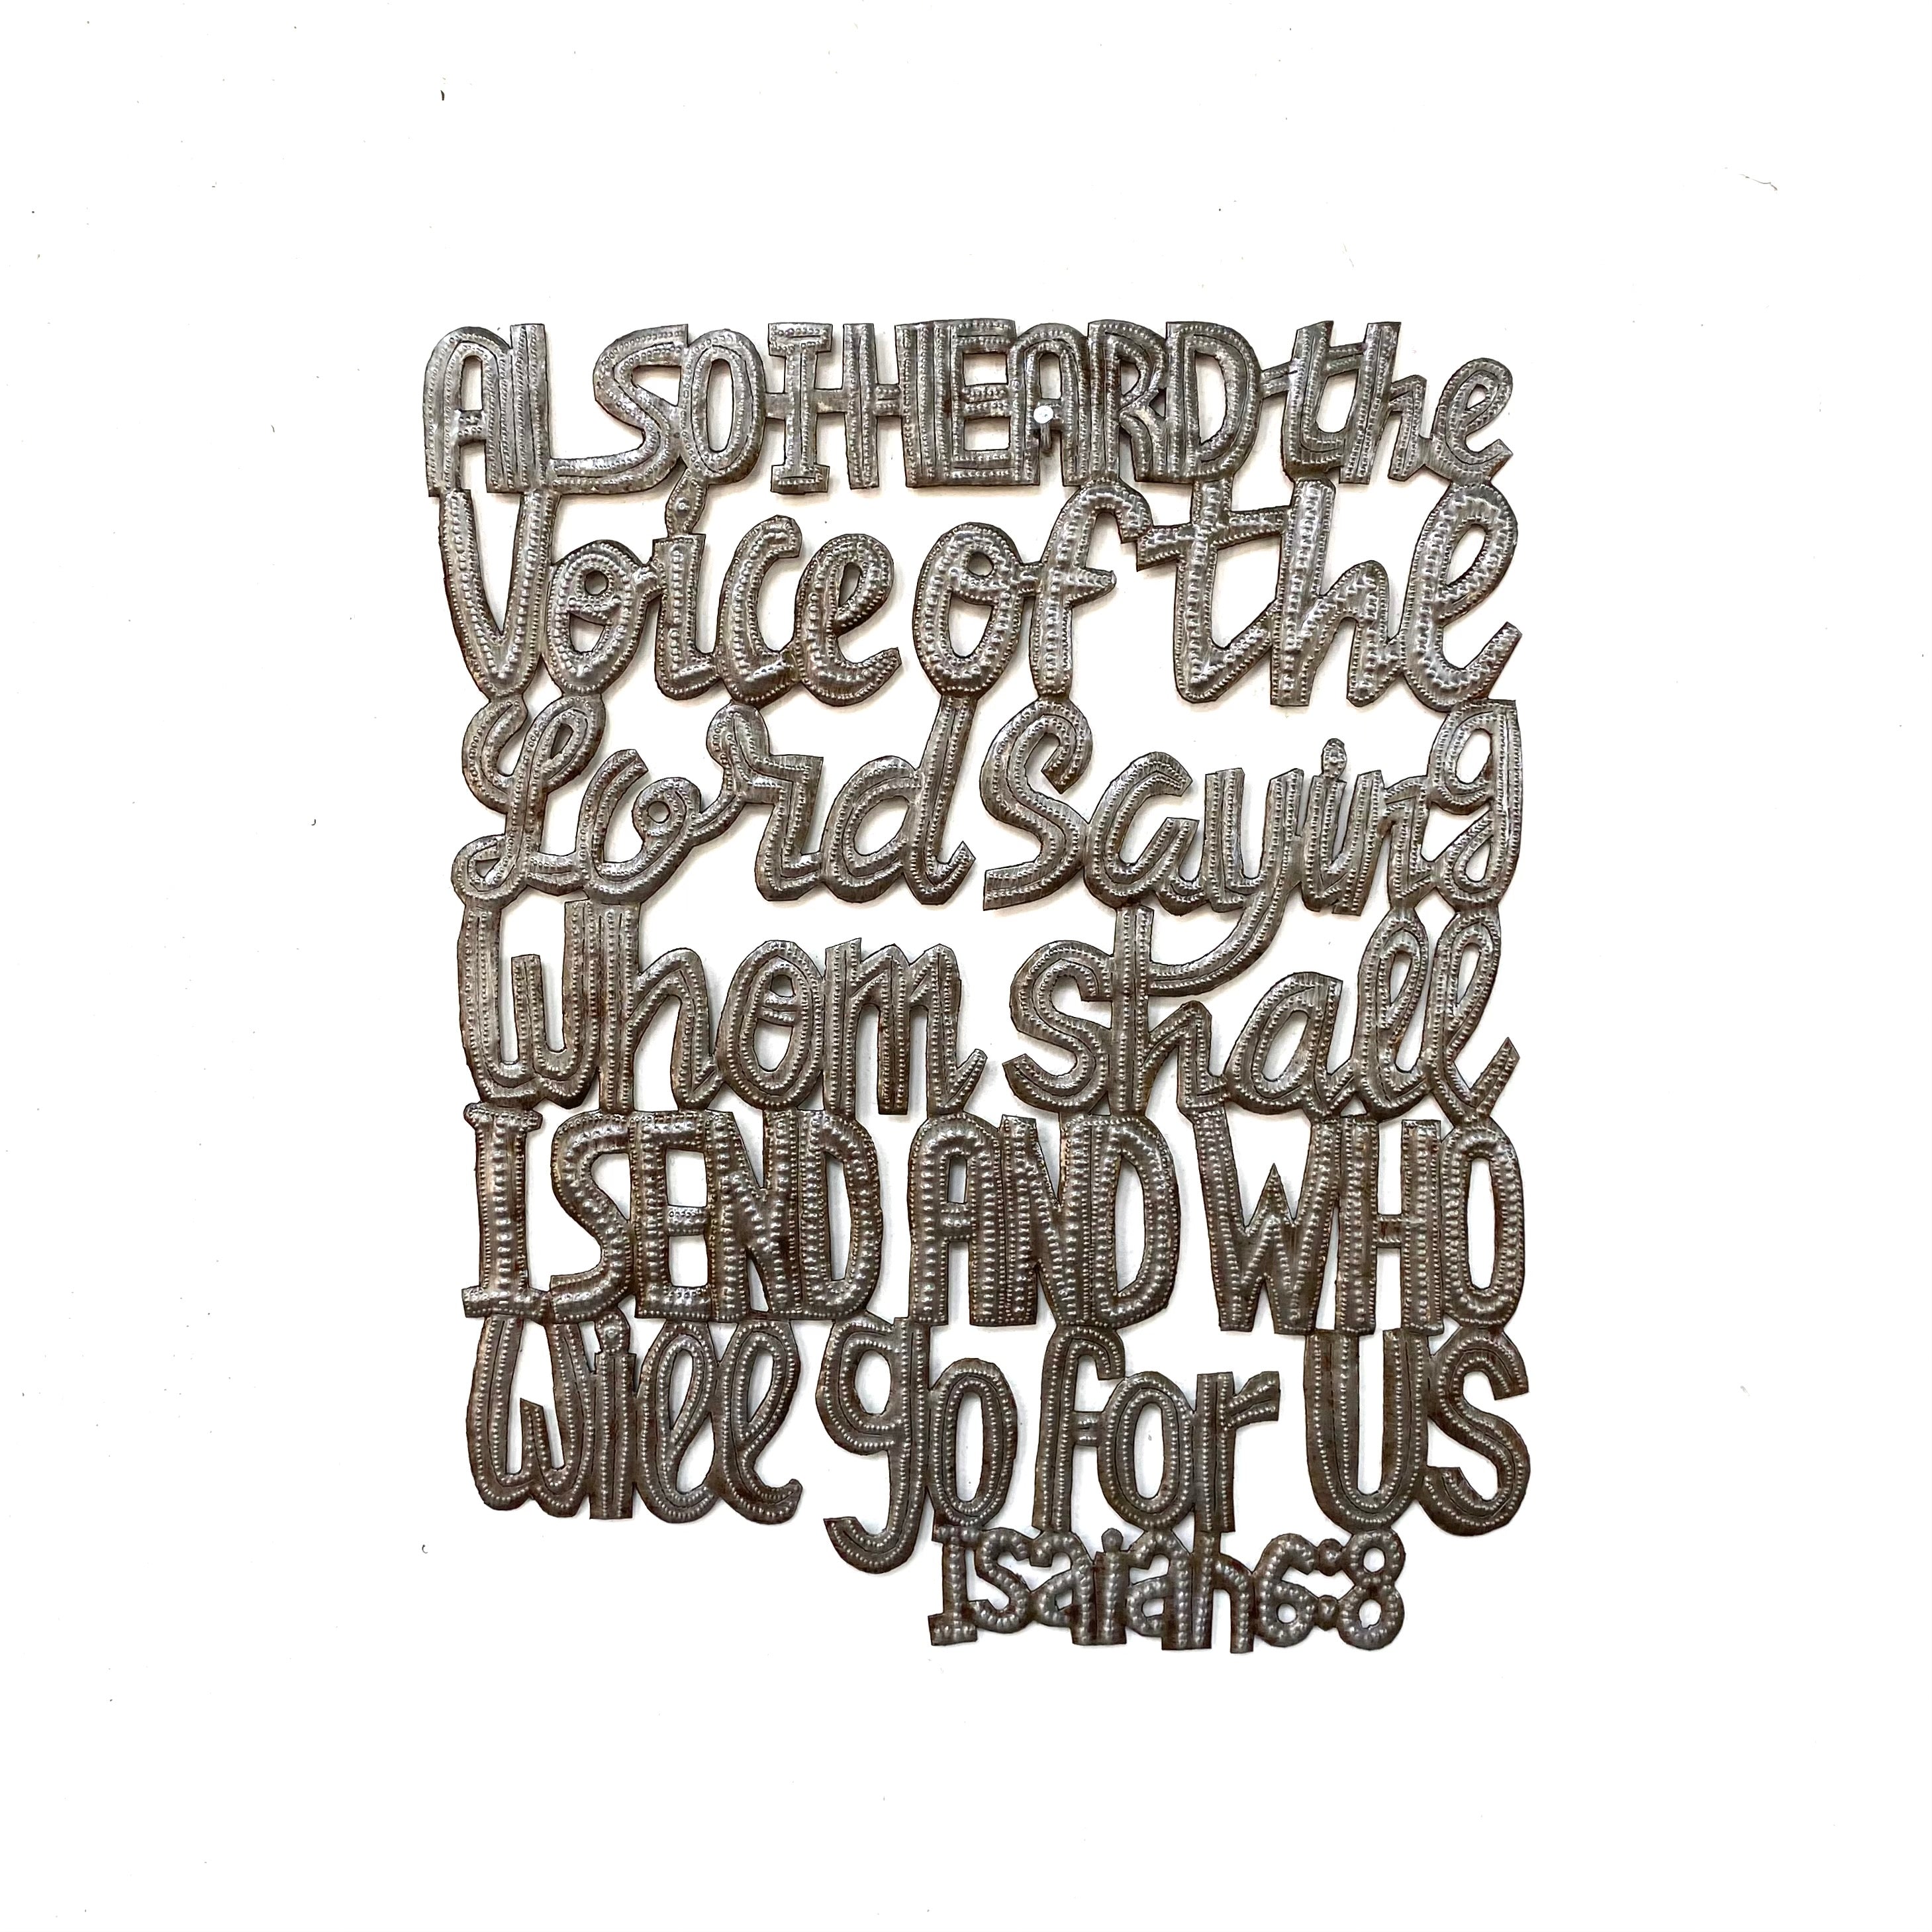 Also I HEARD the
Voice of the
Lord Saying
whom shall
I SEND AND WHO
Will go for US
Isaiah 6:8